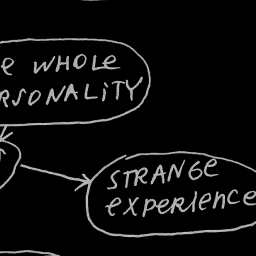 E WHOLE
RSONALITY
STRANGE
EXPERIENCE